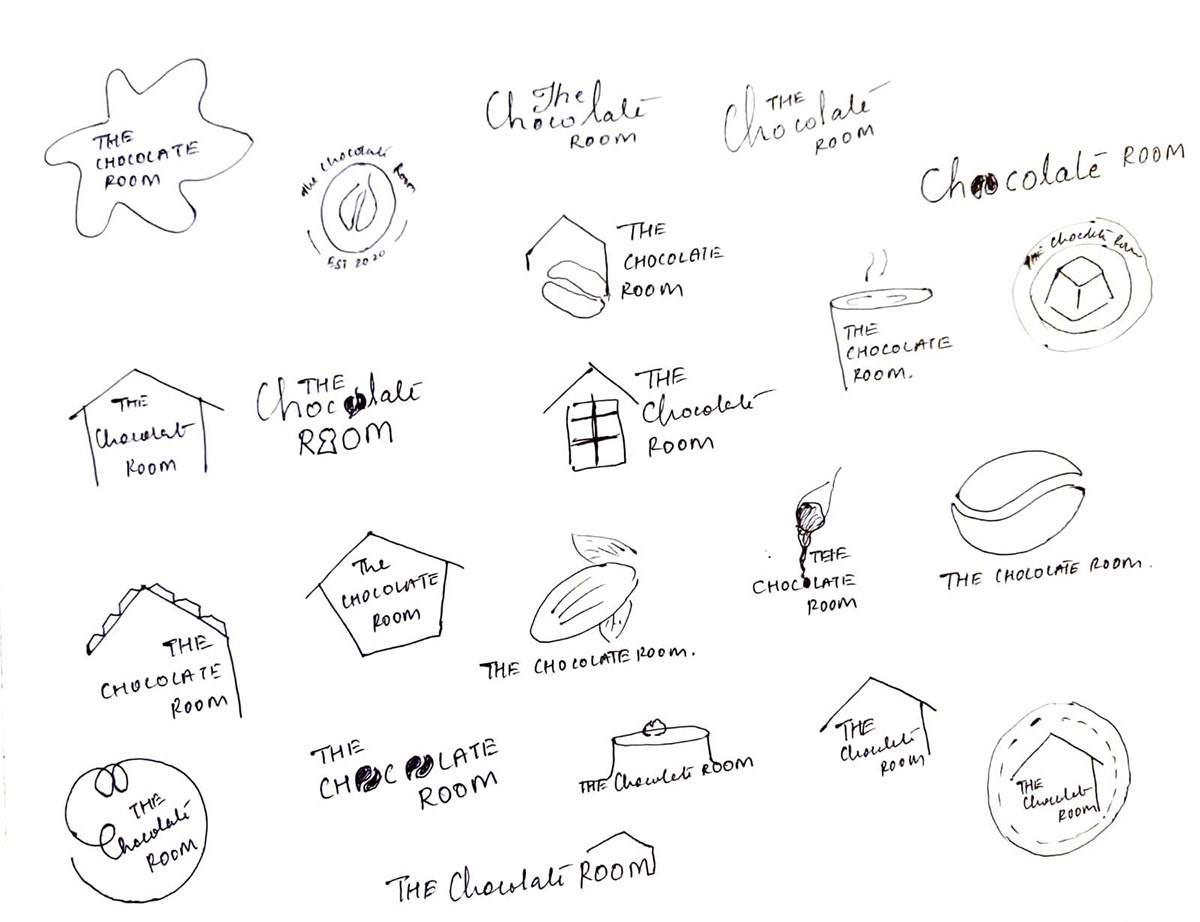 THE
CHOCOLATE
ROOM
The chocolaté Room
EST 2020
The
Chocolaté
ROOM
THE
Chocolaté
ROOM
Chocolaté ROOM
THE
CHOCOLATE
ROOM
THE
CHOCOLATE
ROOM.
THE Chocolaté Room
THE
Chocolaté
ROOM
THE
Chocolaté
ROOM
THE
Chocolaté
ROOM
THE
CHOCOLATE
ROOM
THE CHOCOLATE ROOM.
The
CHOCOLATE
ROOM
THE CHOCOLATE ROOM.
THE
CHOCOLATE
ROOM
THE
Chocolaté
ROOM
THE
CHOCOLATE
ROOM
THE Chocolaté ROOM
THE
Chocolaté
ROOM
THE
Chocolaté
ROOM
THE Chocolaté ROOM